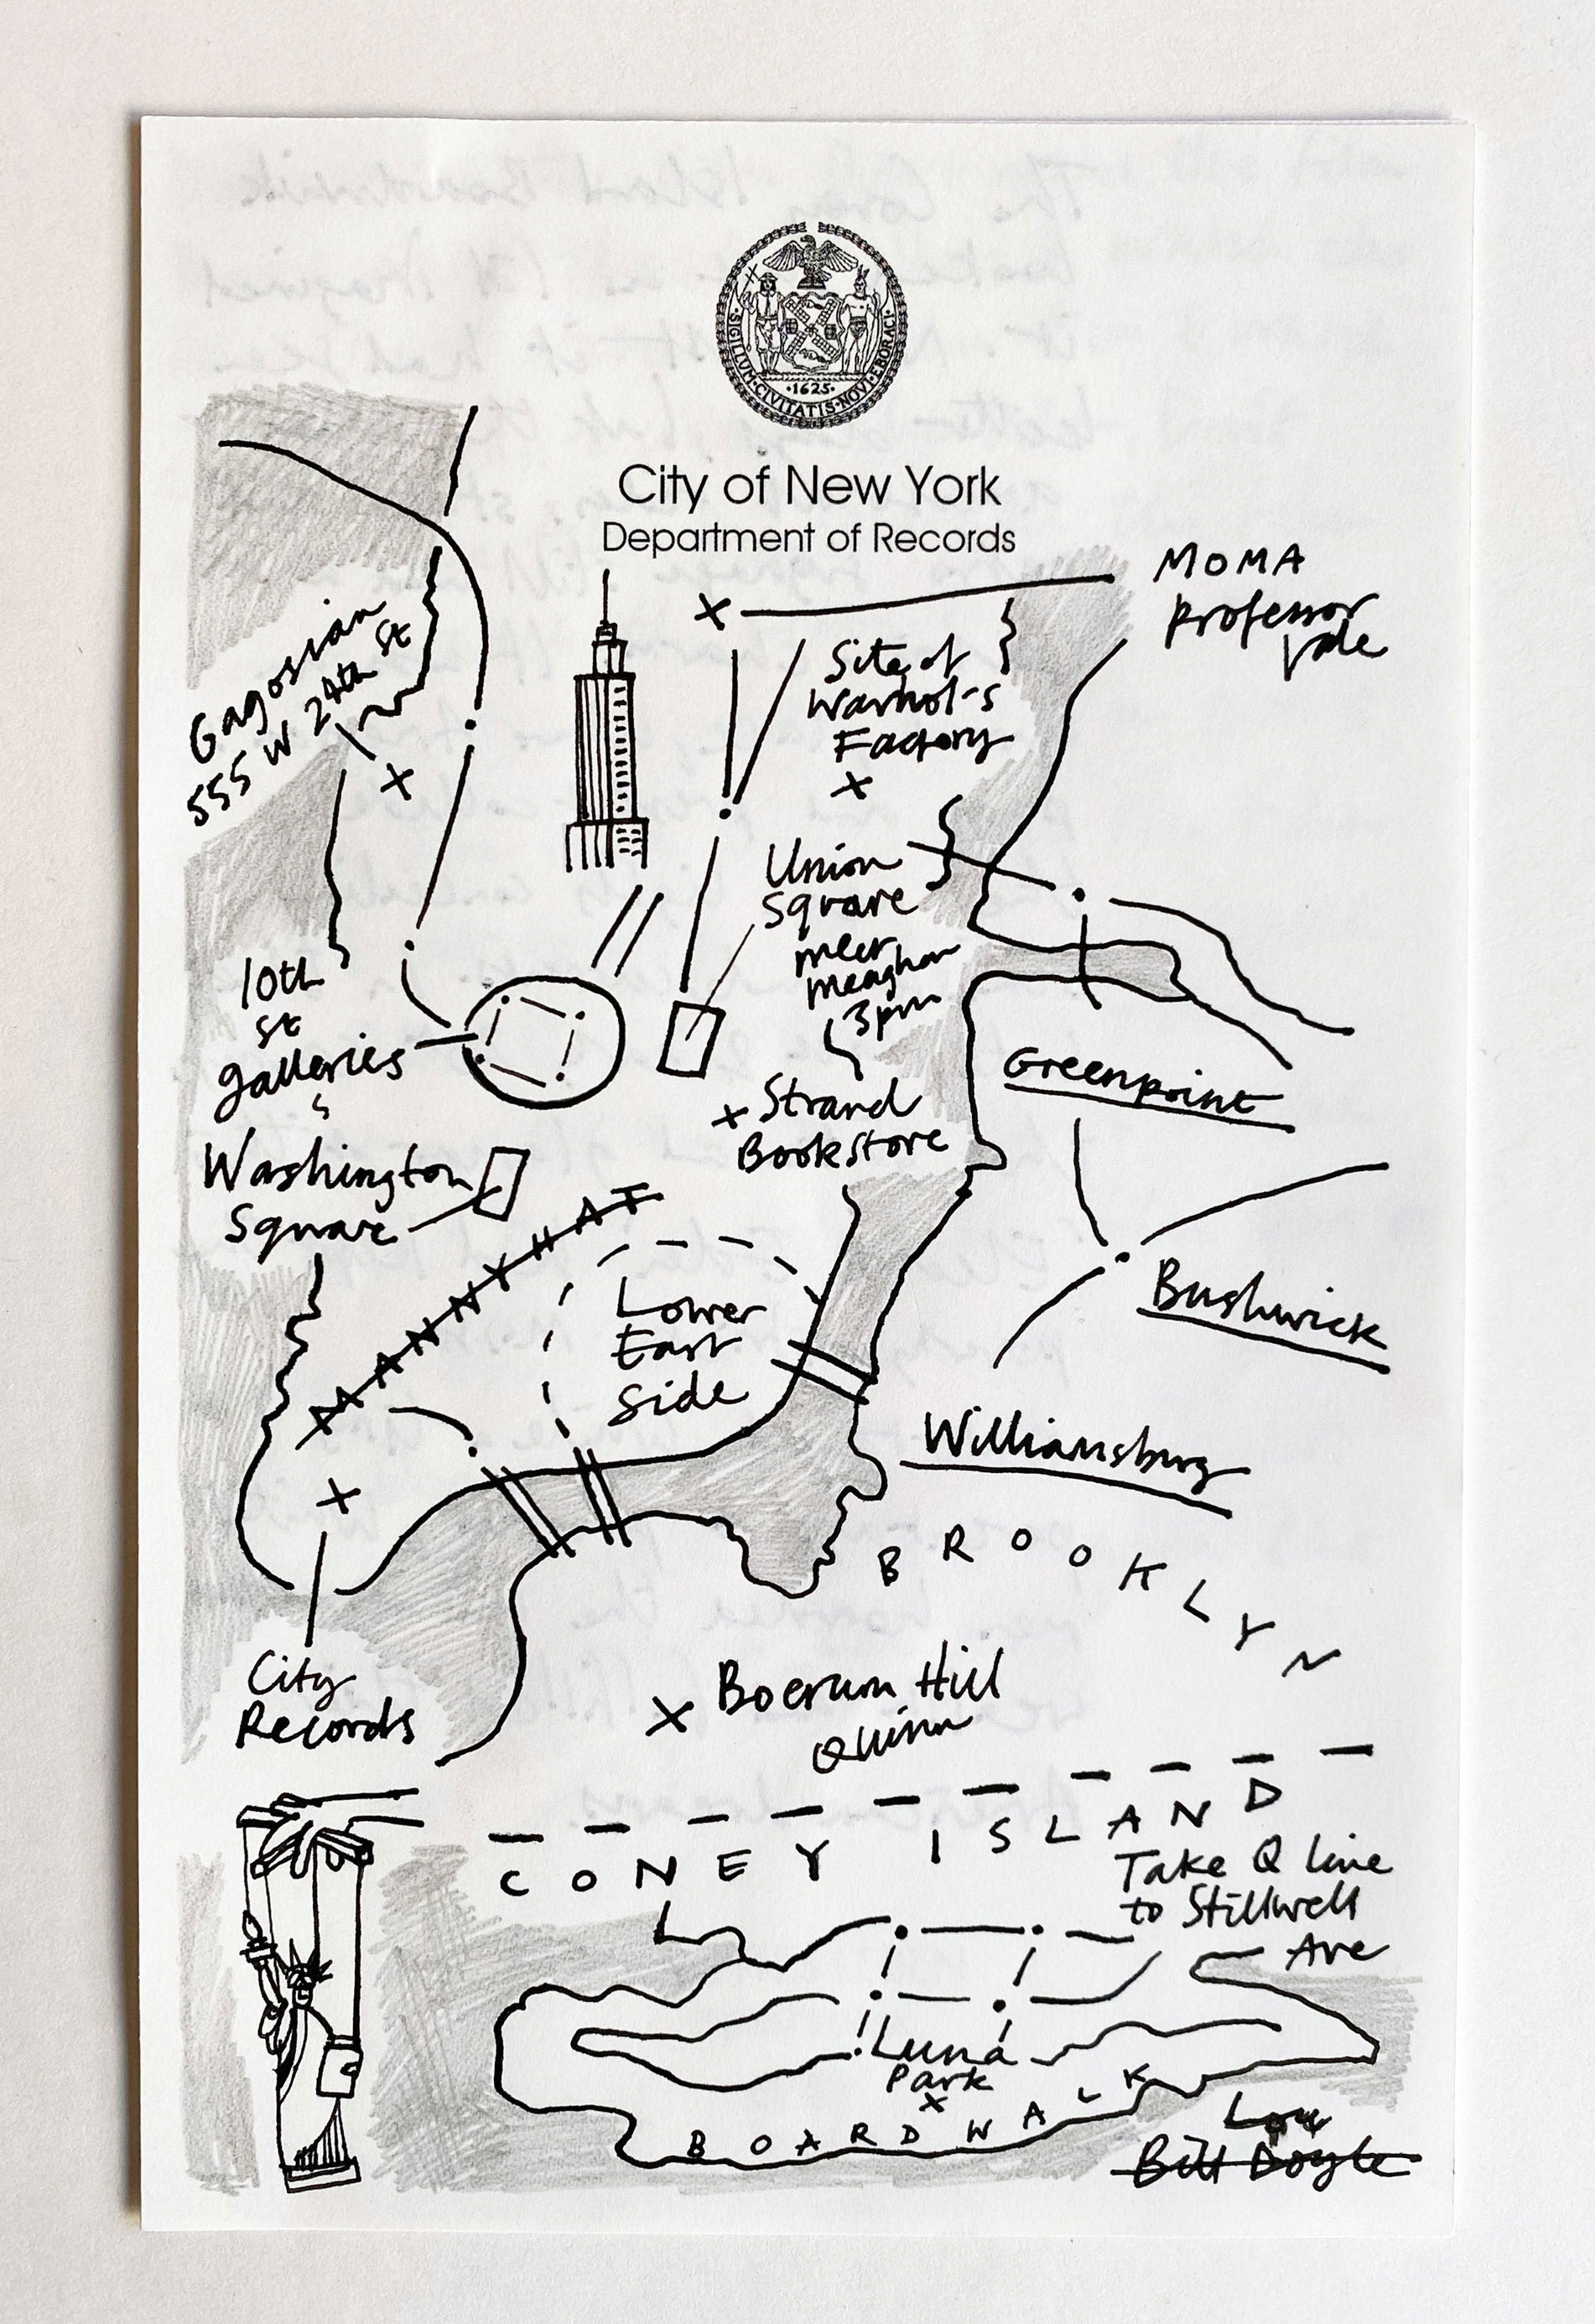 SIGILLUM·CIVITATIS·NOVI·EBORACI
·1625·
City of New York
Department of Records
MOMA
Professor
Vale
Gagosian
555 W 24th St
Site of
Warhol's
Factory
Union
Square
meet
Meaghan
3pm
10th
St
galleries
Strand
Bookstore
Greenpoint
Washington
Square
Lower
East
Side
Bushwick
Williamsburg
BROOKLYN
City
Records
Boerum Hill
Quinn
CONEY ISLAND
Take Q line
to Stillwell
Ave
Luna
Park
BOARDWALK
Lou
Bill Doyle